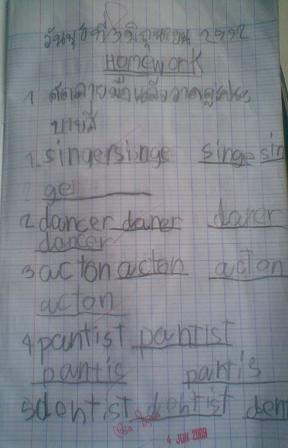 วันพุธที่ 3 มิถุนายน 2552
Homework
1 คัดลายมือแล้ววาดรูป
ระบายสี
1. singersinge singesin
ger
2 dancer daner daner
dancer
3 acton acton acton
acton
4 pantist pantist
pantis pantis
5 dontist dentist den
4 JUN 2009